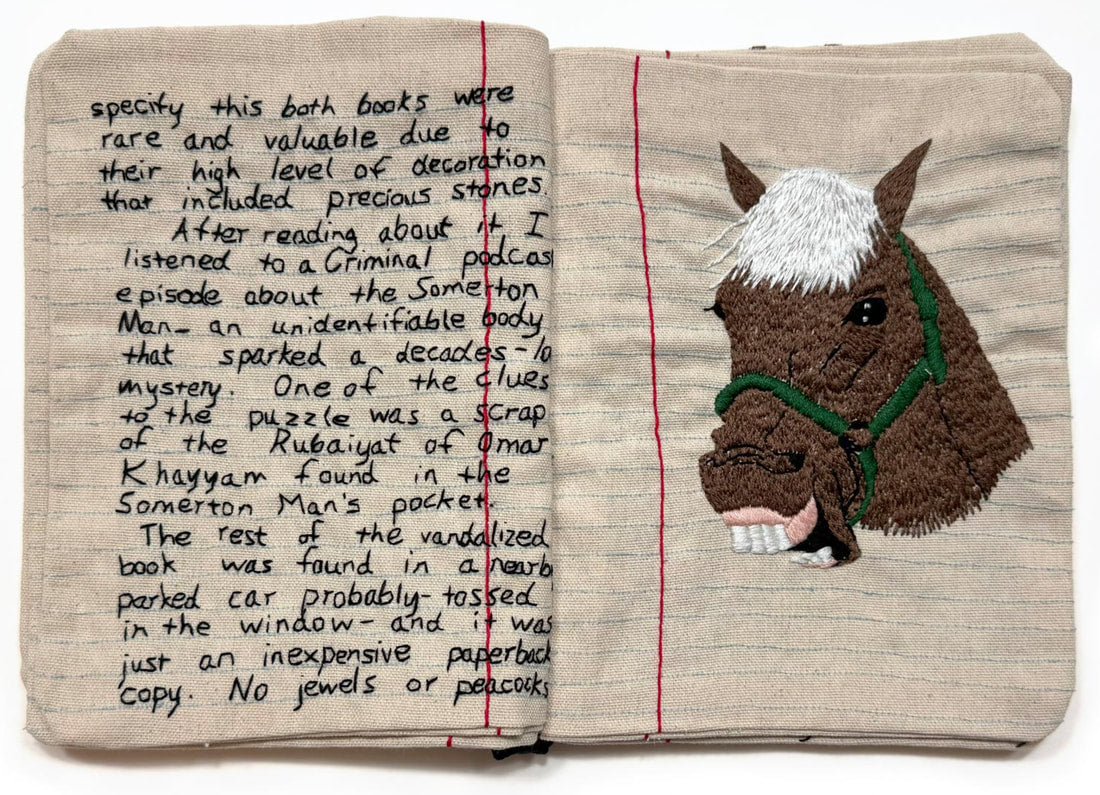 specify this both books were
rare and valuable due to
their high level of decoration
that included precious stones.
After reading about it, I
listened to a Criminal podcas
episode about the Somerton
Man- an unidentifiable body
that sparked a decades-lo
mystery. One of the clues
to the puzzle was a scrap
of the Rubaiyat of Omar
Khayyam found in the
Somerton Man's pocket.
The rest of the vandalized
book was found in a nearb
parked car probably- tossed
in the window- and it was
just an inexpensive paperback
copy. No jewels or peacocks